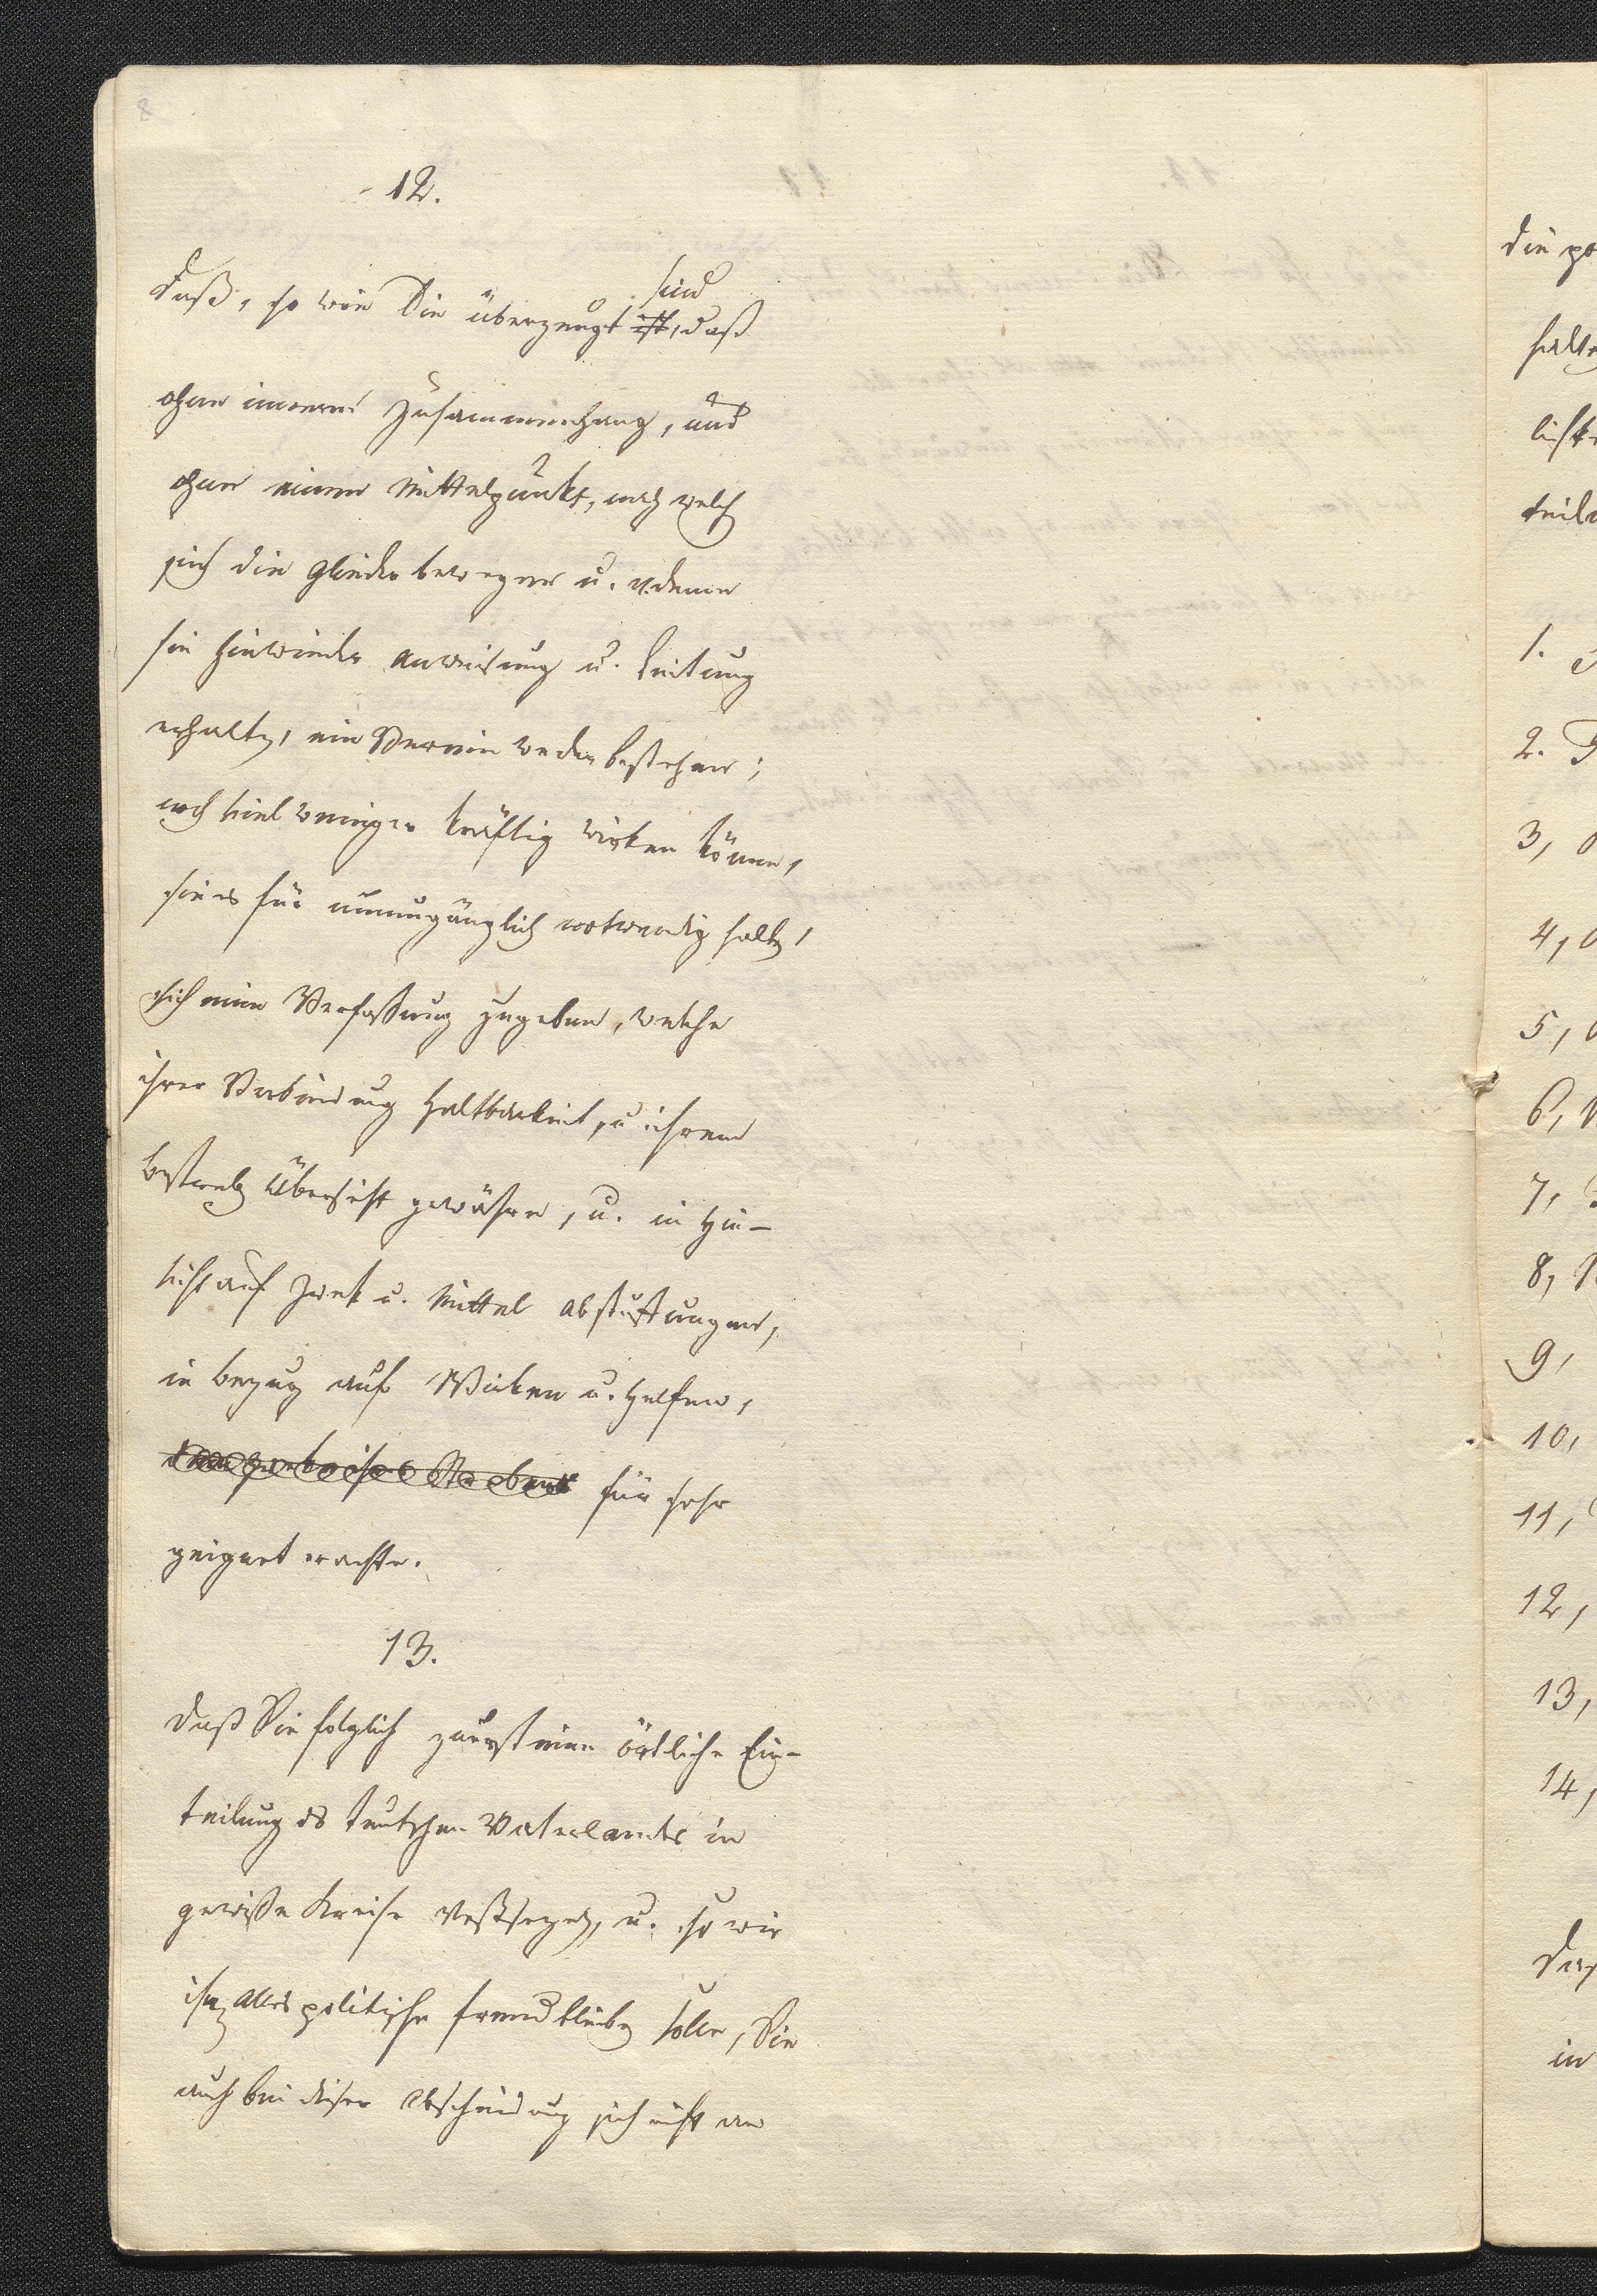 8
12.
daß, so wie Die überzeugt ist sind, daß
ohne innern Zusammenhang, und
ohne einen Mittelpunkt, nach welch
sich die Glieder bewegen u. v. dem
sie hinwieder Anweisung u. Leitung
erhalten, ein Verein weder bestehen;
noch viel weniger kräftig wirken könne,
sie es für unumgänglich notwendig halte,
sich eine Verfassung zugeben, welche
ihrer Verbindung Haltbarkeit, u ihrem
bestreb Übersicht gewähre, u. in Hin-
sicht auf Zwek u. Mittel Abstuffungen,
in bezug auf Wirken u. Helfen,
für sehr
geignet erachte.
13.
daß Sie folglich zuerst eine örtliche Ein-
teilung des teutschen Vaterlandes in
gewisse Kreise vestsezen, u. so wie
ihr alles politische fremd bleiben solle, Sie
auch bei dieser Abscheidung sich nicht an
die
halte
licht
teil
1.
2.
3,
4,
5,
6,
7,
8,
9,
10,
11,
12,
13,
14,
in